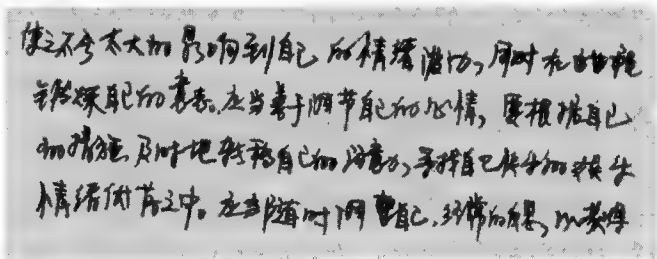 使之不会太大的影响到自己的情绪活动，同时在也能
锻炼自己的意志。应当善于调节自己的心情，要根据自己
的情绪及时地转移自己的注意力，寻找自己快乐的
情绪体 之中。应当随时调整自己，经常的